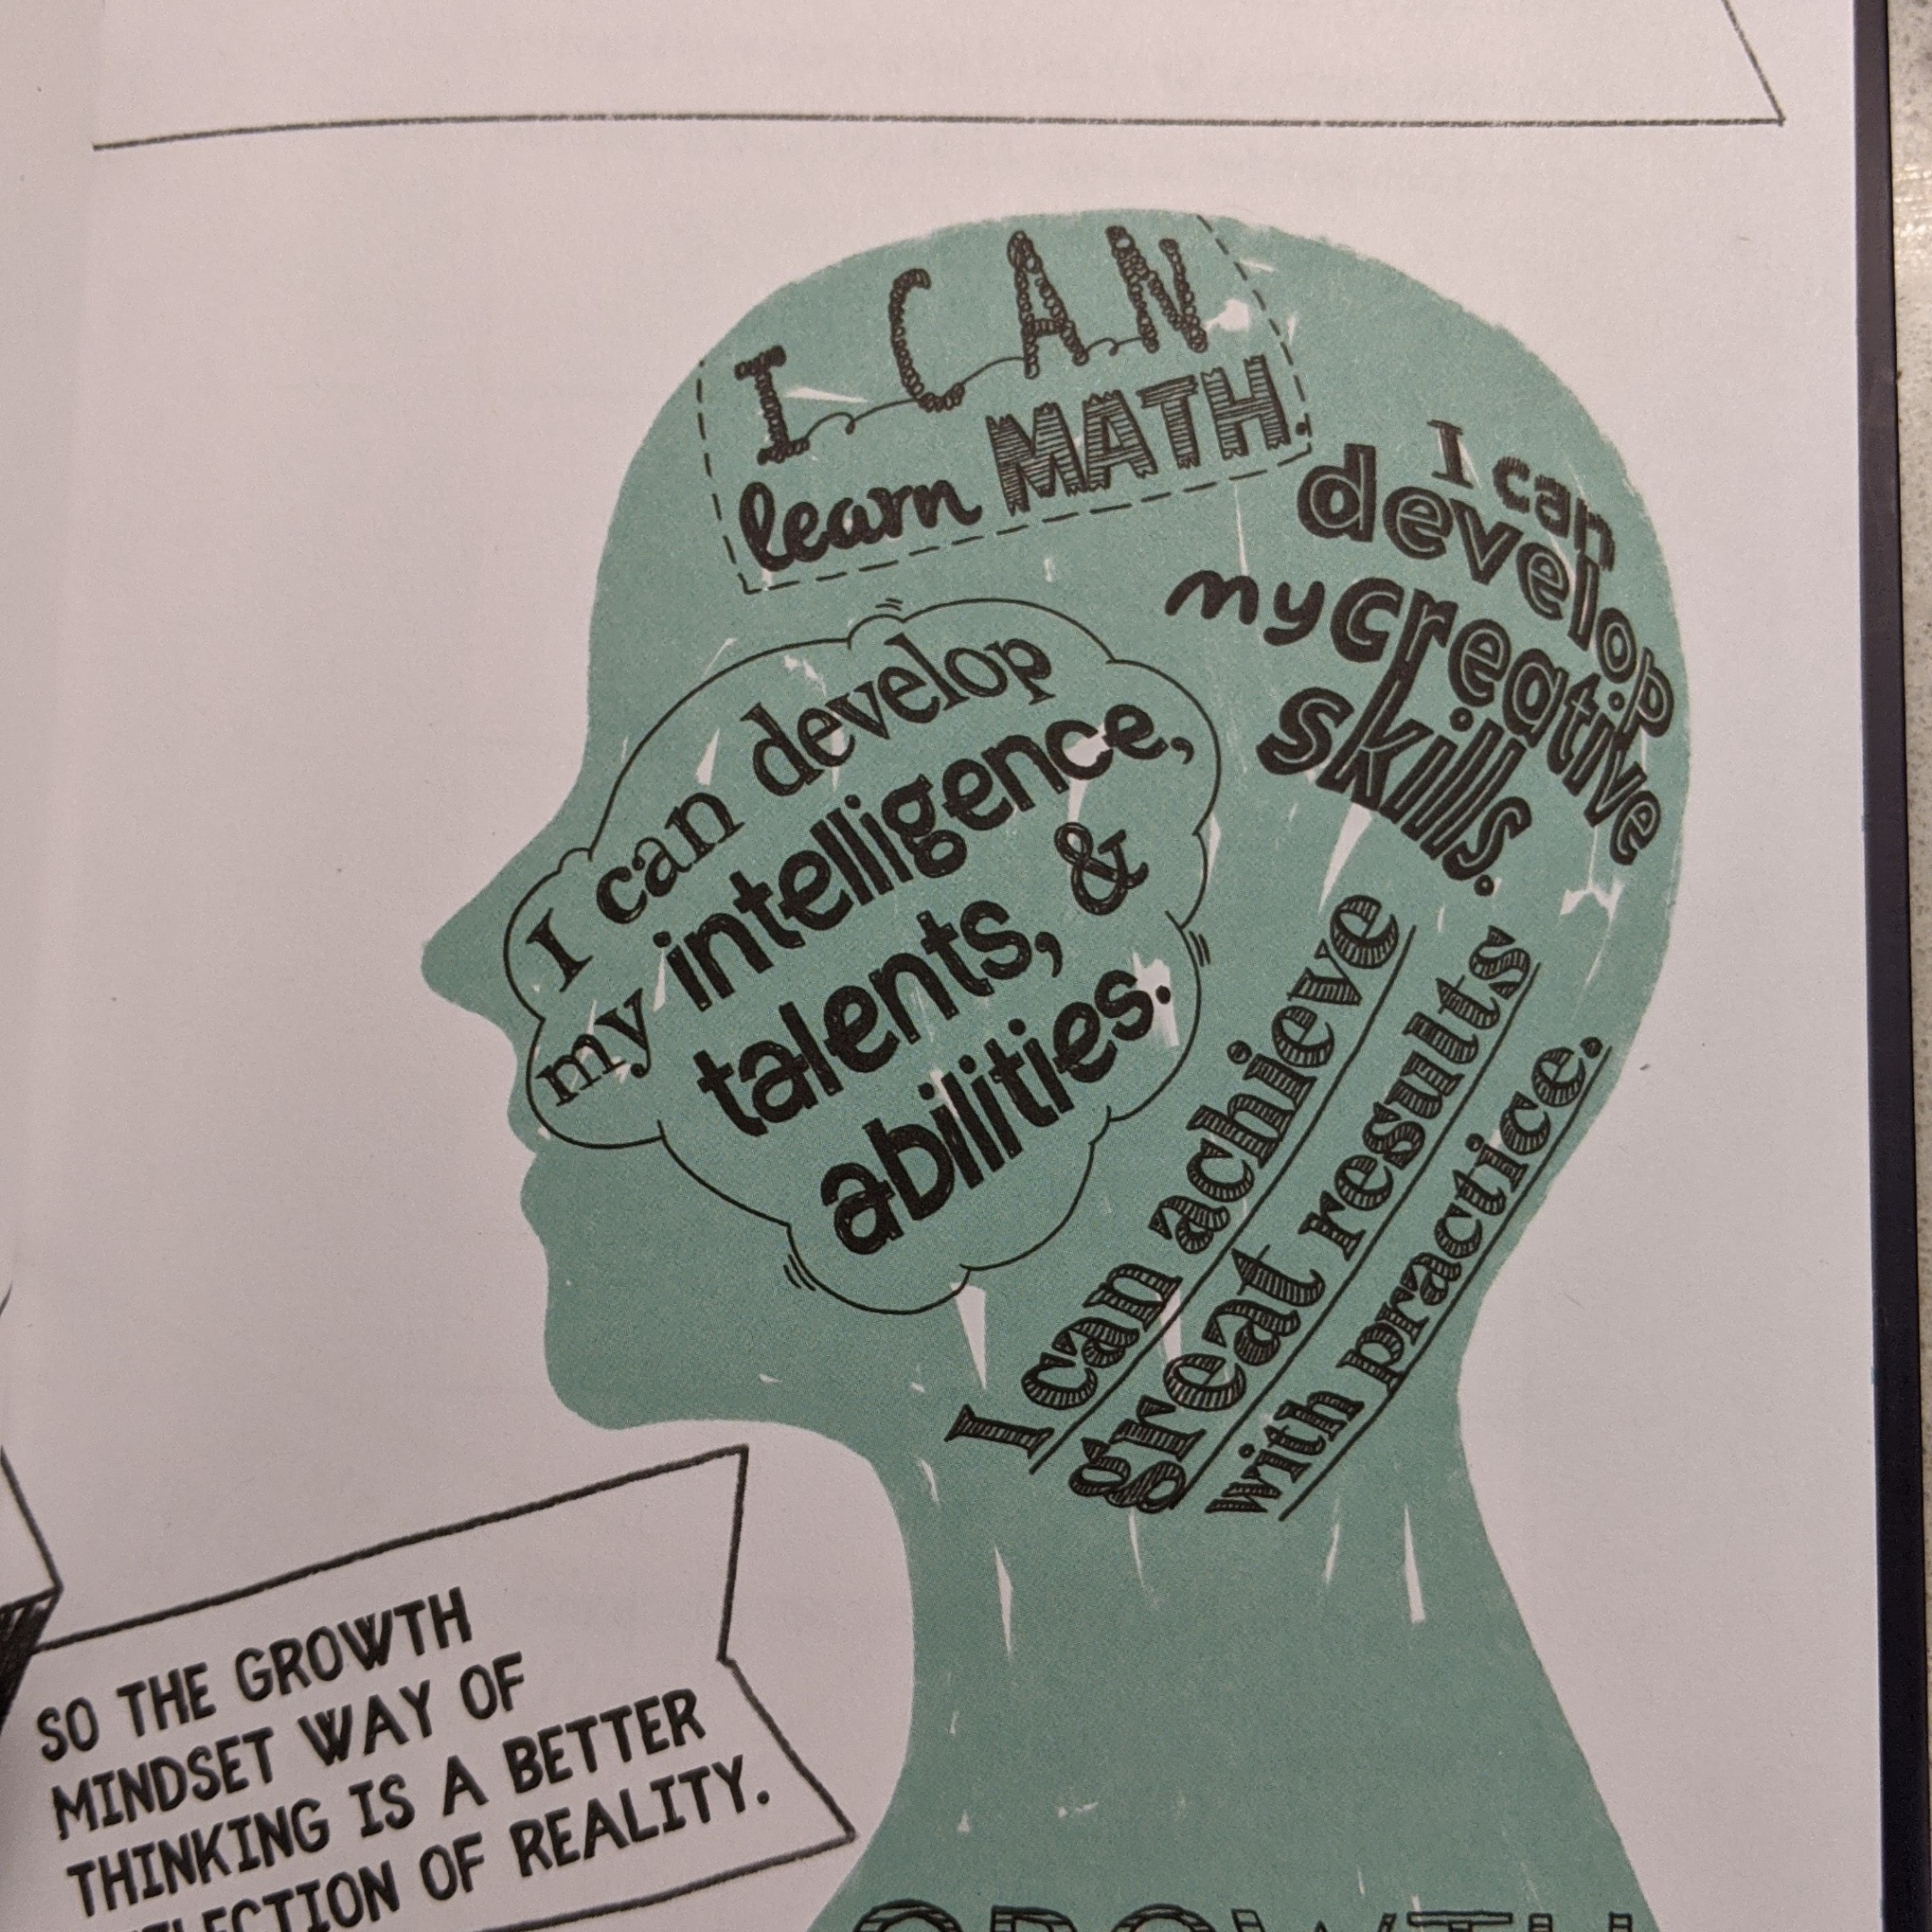 I CAN
learn MATH.
I can
develop
my creative
skills.
I can develop
my intelligence,
talents, &
abilities.
I can achieve
great results
with practice.
SO THE GROWTH
MINDSET WAY OF
THINKING IS A BETTER
OF REALITY.
GROWTH